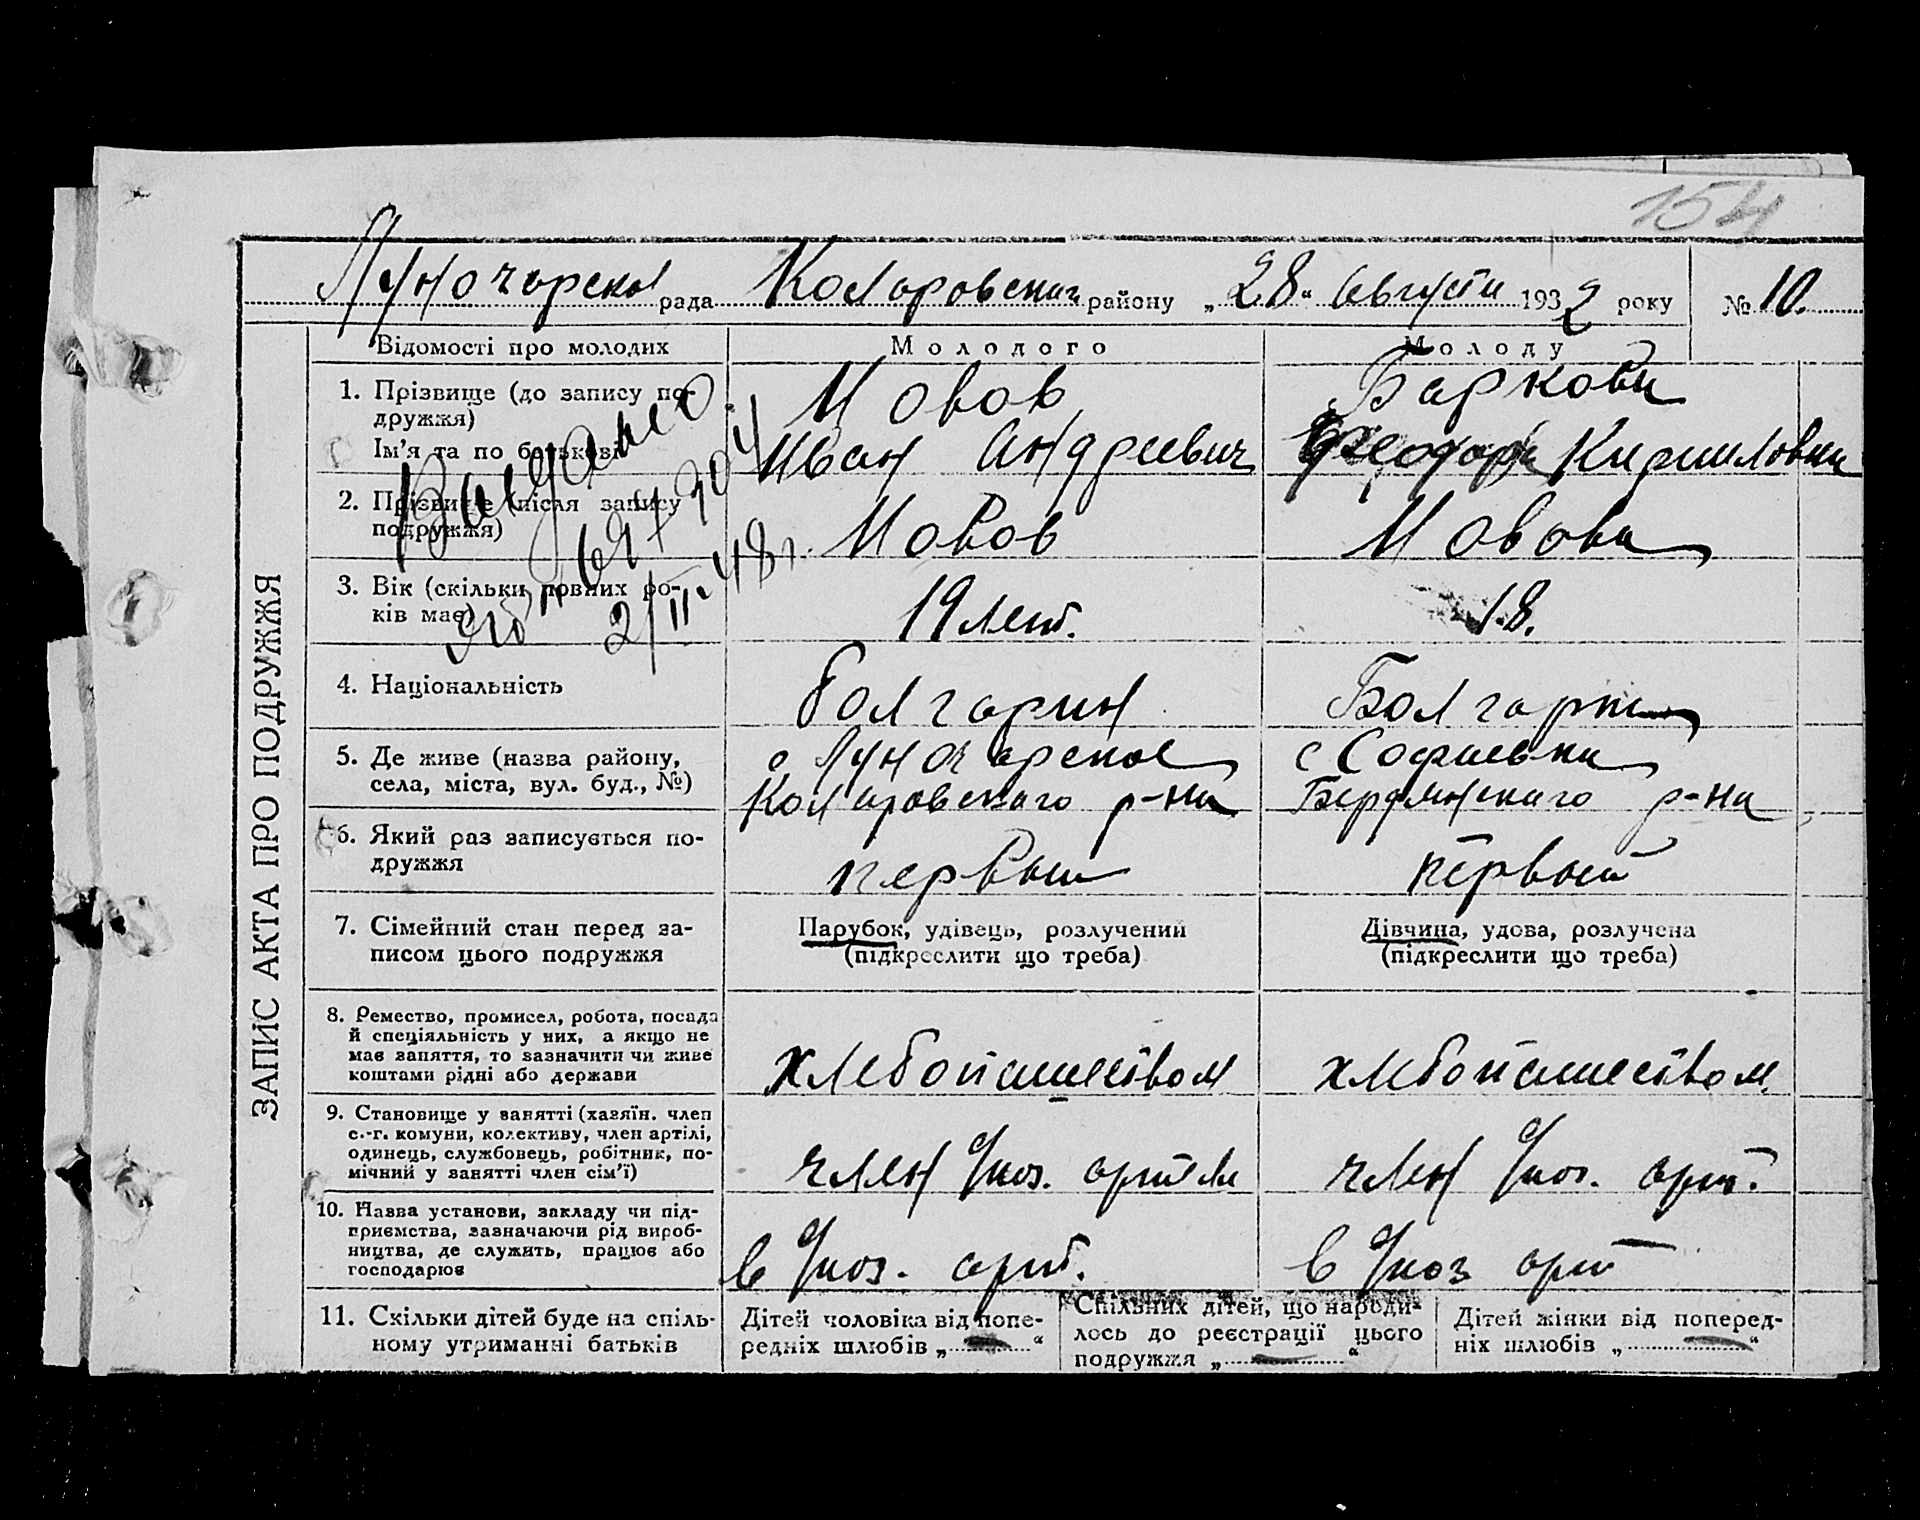 154
Луночарская рада Коларовский району „28“ августа 1932 року № 10.
ЗАПИС АКТА ПРО ПОДРУЖЖЯ
Відомості про молодих
Молодого
Молоду
1. Прізвище (до запису по-
дружжя)
Ім'я та по батькові
Мовов
Иван Андреевич
Баркова
Кирилловна
2. Прізвище (після запису
подружжя)
Мовов
Мовова
3. Вік (скільки повних ро-
ків має)
19 лет.
18.
Выдано
2/II-48 г.
4. Національність
болгарин
Болгарка
5. Де живе (назва району,
села, міста, вул. буд., №)
с Луночарское
Коларовскаго р-на
с Софиевка
Бердянскаго р-на
6. Який раз записується по-
дружжя
первый
первый
7. Сімейний стан перед за-
писом цього подружжя
Парубок, удівець, розлучений
(підкреслити що треба)
Дівчина, удова, розлучена
(підкреслити що треба)
8. Ремество, промисел, робота, посада
й спеціяльність у них, а якщо не
має заняття, то зазначити чи живе
коштами рідні або держави
хлебопашеством
хлебопашеством
9. Становище у занятті (хазяїн. член
с.-г. комуни, колективу, член артілі,
одинець, службовець, робітник, по-
мічний у занятті член сім'ї)
член артели
член арт.
10. Назва установи, закладу чи під-
приємства, зазначаючи рід вироб-
ництва, де служить, працює або
господарює
в арт.
в арт
11. Скільки дітей буде на спіль-
ному утриманні батьків
Дітей чоловіка від попе-
редніх шлюбів „ — “
Спільних дітей, що народи-
лось до реєстрації цього
подружжя „ — “
Дітей жінки від поперед-
ніх шлюбів „ — “